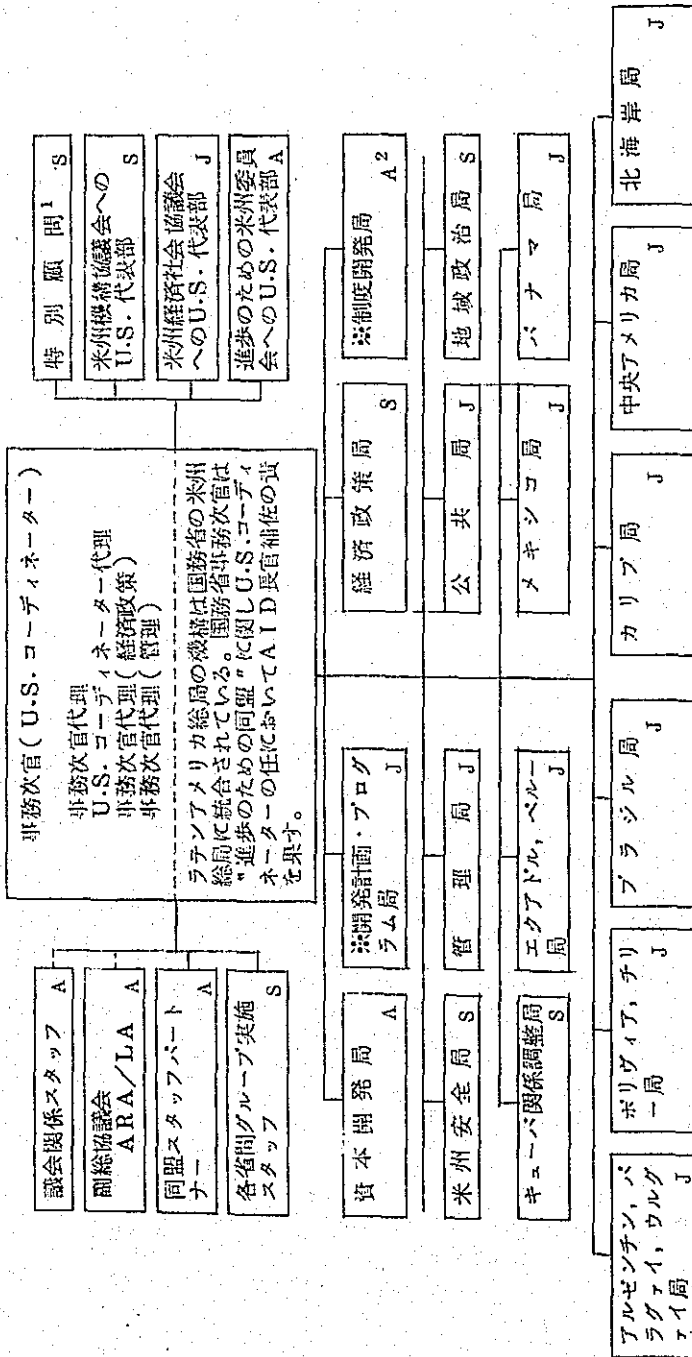 事務次官(U.S.コーディネーター)
事務次官代理
U.S.コーディネーター代理
事務次官代理(経済政策)
事務次官代理(管理)
ラテンアメリカ総局の機構は国務省の米州
総局に統合されている。国務省事務次官は
"進歩のための同盟"に関しU.S.コーディ
ネーターの任においてAID長官補佐の責
を果す。
議会関係スタッフ A
副総協議会
ARA/LA A
同盟スタッフパート
ナー A
各省間グループ実施
スタッフ S
特別顧問¹ S
米州機構協議会への
U.S.代表部 S
米州経済社会協議会
へのU.S.代表部 J
進歩のための米州委員
会へのU.S.代表部 A
資本開発局 A
※開発計画・プログ
ラム局 J
経済政策局 S
※制度開発局 A²
米州安全局 S
管理局 J
公共局 J
地域政治局 S
キューバ関係調整局 S
エクアドル,ペルー
局 J
メキシコ局 J
パナマ局 J
アルゼンチン,パ
ラグァイ,ウルグ
ァイ局 J
ボリヴィア,チリ
ー局 J
ブラジル局 J
カリブ局 J
中央アメリカ局 J
北海岸局 J